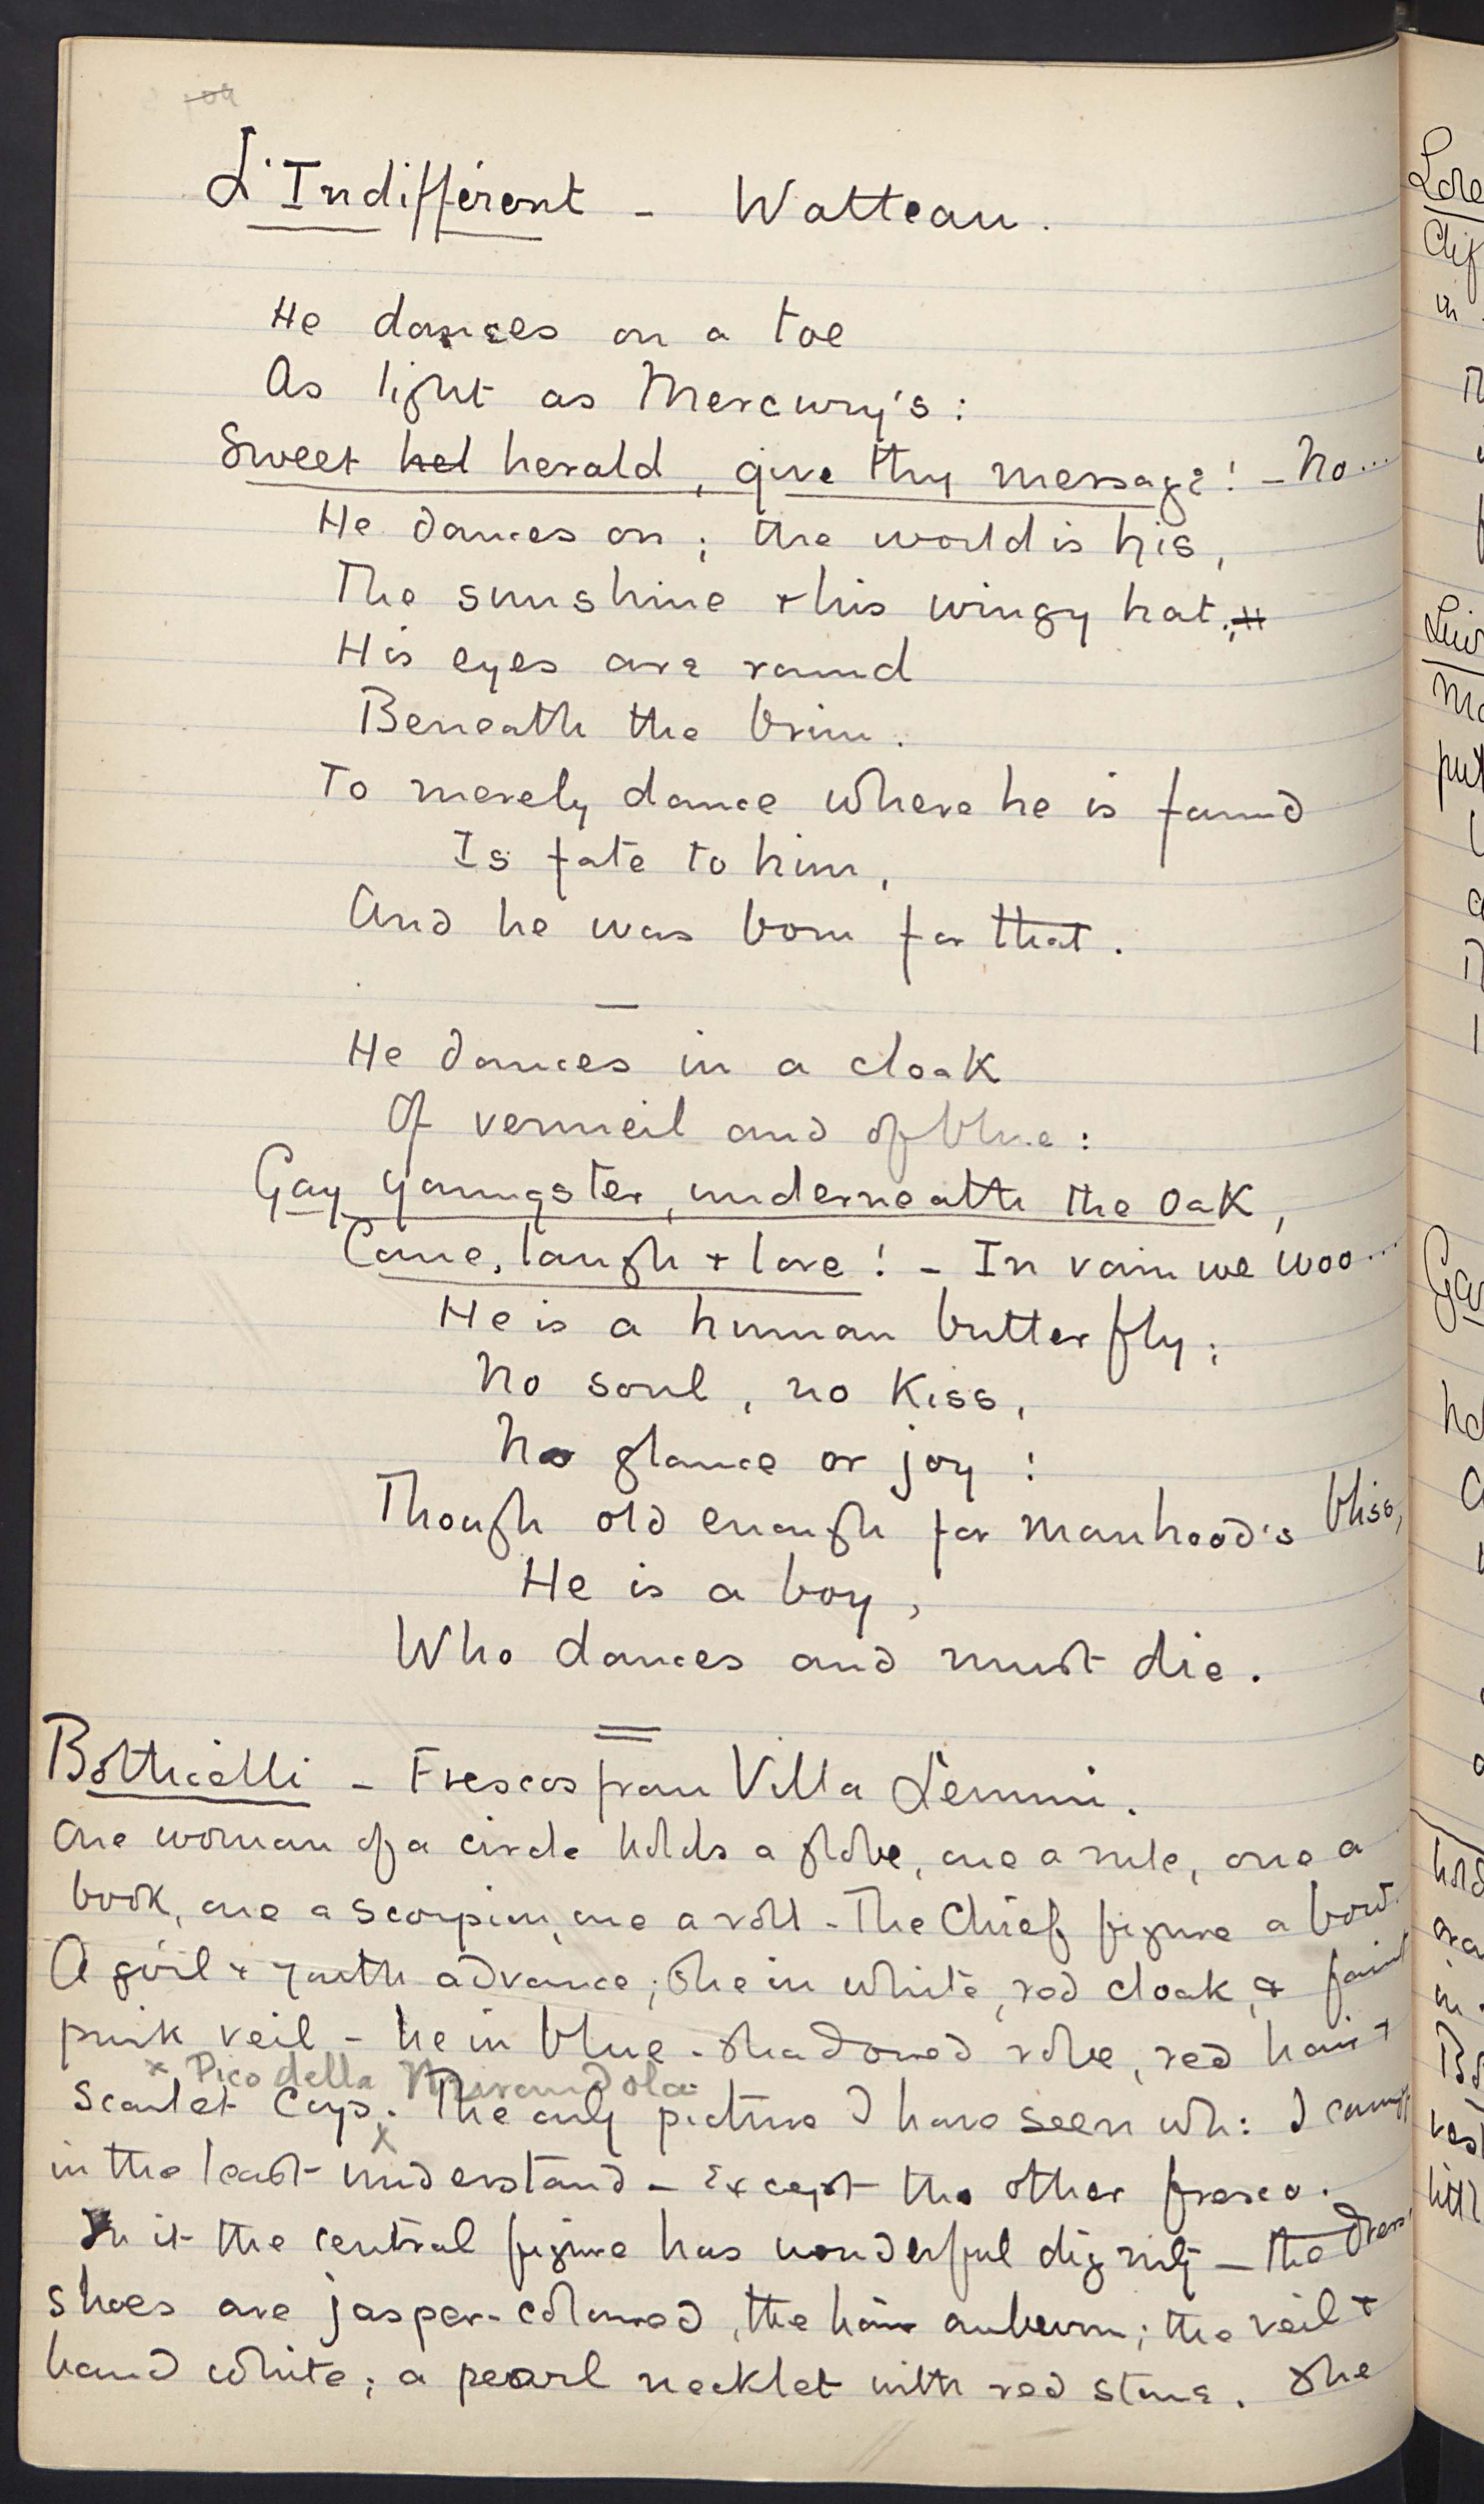 L'Indifférent - Watteau.
He dances on a toe
As light as Mercury's:
Sweet hel herald, give thy message! - No...
He dances on; the world is his,
The sunshine + his wingy hat.;
His eyes are round
Beneath the brim.
To merely dance where he is found
Is fate to him,
And he was born for that.
—
He dances in a cloak
Of vermeil and of blue:
Gay youngster, underneath the oak,
Come, laugh + love! - In vain we woo...
He is a human butterfly;
No soul, no kiss,
No glance or joy!
Though old enough for manhood's bliss,
He is a boy,
Who dances and must die.
=
Botticelli - Frescos from Villa Lemmi.
One woman of a circle holds a globe, one a rule, one a
book, one a scorpion, one a roll - The Chief figure a bow.
A girl + youth advance; she in white, red cloak, + faint
pink veil - he in blue-shadowed robe, red hair +
x Pico della Mirandola
Scarlet Cap. x The only picture I have seen wh: I cannot
in the least understand - Except the other fresco.
In it the central figure has wonderful dignity - the dress,
shoes are jasper-coloured, the hair auburn; the veil +
hand white; a pearl necklet with red stone. She
Lore
in
put